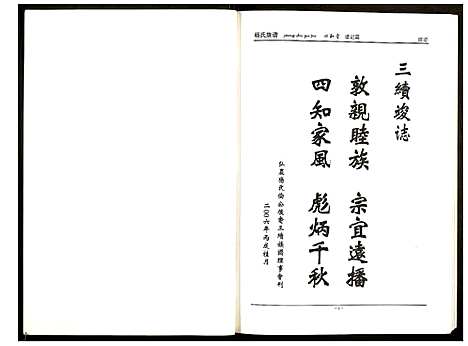 楊氏族譜 yang shi zu pu 四知堂
三續竣誌
敦親睦族 宗宜遠播
四知家風 彪炳千秋
弘農楊氏倫公後裔三續族譜理事會刊
二〇〇六年丙戌桂月